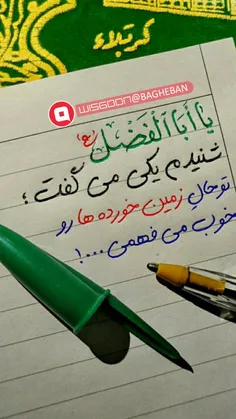 کربلاء
WISGOON@BAGHEBAN
یا أبا الْفَضْل (ع)
شنیدم یکی می گفت؛
تو حالِ زمین خورده ها رو
خوب می فهمی ...!